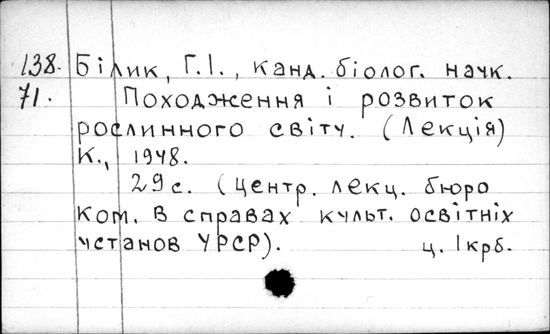 138. Білик, Г.І., канд. біолог. наук.
71. Походження і розвиток
рослинного світу. (Лекція)
К., 1948.
29 с. (Центр. лекц. бюро
ком. в справах культ. освітніх
установ УРСР). ц. 1 крб.